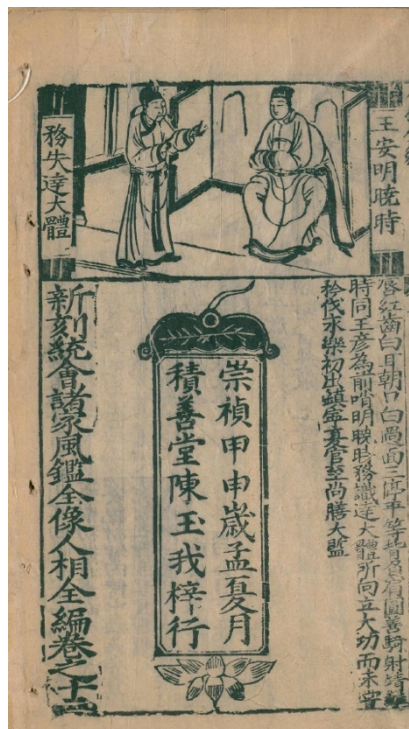 王安明曉時
務失達大體
唇紅齒白耳朝口白過面三停平等背肩圓善騎射
時同王彥為前哨明曉時務識達大體所向立大功而未嘗
矜伐永樂初出鎮寧夏官至尚膳大監
崇禎甲申歲孟夏月
積善堂陳玉我梓行
新刻統會諸家風鑑全像人相全編卷之十二